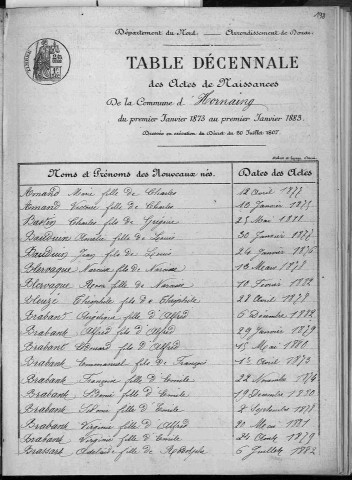 Département du Nord. Arrondissement de Douai.
TABLE DÉCENNALE
des Actes de Naissances
De la Commune d'Hornaing
du premier Janvier 1873 au premier Janvier 1883.
Dressée en exécution du Décret du 20 Juillet 1807.
Noms et Prénoms des Nouveaux nés. Dates des Actes
Amand Marie fille de Charles 12 Avril 1877
Amand Victoire fille de Charles 10 Janvier 1875
Bastin Charles fils de 25 Mai 1881
Bauduin Rosalie fille de Louis 30 Janvier 1877
Bauduin Jean fils de Louis 24 Janvier 1876
Blervaque Narcisse fils de Narcisse 1er Mars 1878
Blervaque fille de Narcisse 10 Février 1882
Bleuzé Théophile fils de Théophile 28 Avril 1878
Brabant Angélique fille d'Alfred 6 Décembre 1882
Brabant Alfred fils d'Alfred 29 Janvier 1879
Brabant fils d'Alfred Mai 1880
Brabant Emmanuel fils de François 1er Avril 1873
Brabant Françoise fille d'Emile 22 Novembre 1876
Brabant fille d'Emile 19 Décembre 1880
Brabant fille d'Emile 2 Septembre 1878
Brabant Virginie fille d'Alfred 20 Mai 1881
Brabant Virginie fille d'Emile 24 Août 1879
Brassart Adélaïde fille de Rodolphe 6 Juillet 1882